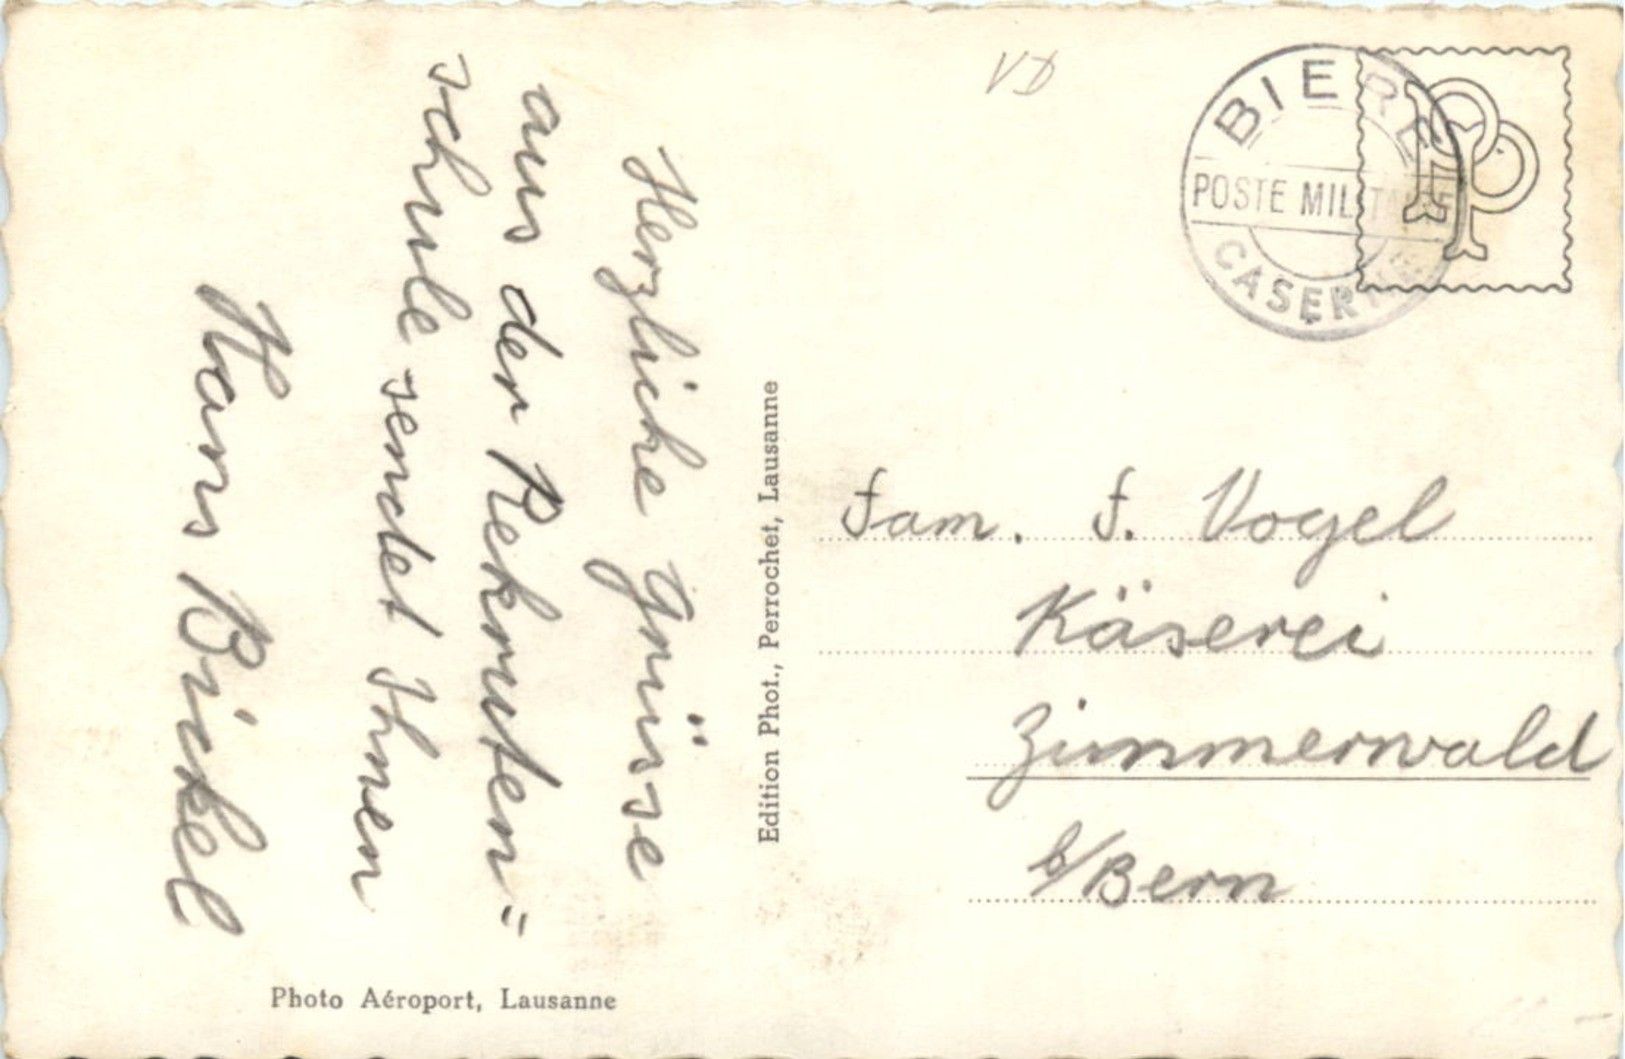 Herzliche Grüsse
aus der Rekruten=
schule sendet Ihnen
Hans Bickel
Photo Aéroport, Lausanne
Edition Phot., Perrochet, Lausanne
VD
BIERE
POSTE MILITAIRE
CASERNE
PP
Fam. F. Vogel
Käserei
Zimmerwald
b/Bern